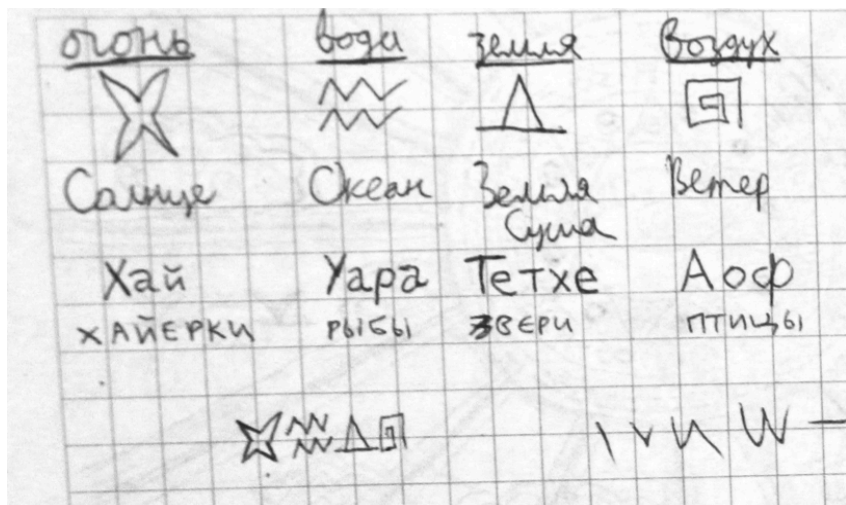 огонь вода земля воздух
Солнце Океан Земля Ветер
Суша
Хай Уара Тетхе Аоф
ХАЙЕРКИ РЫБЫ ЗВЕРИ ПТИЦЫ